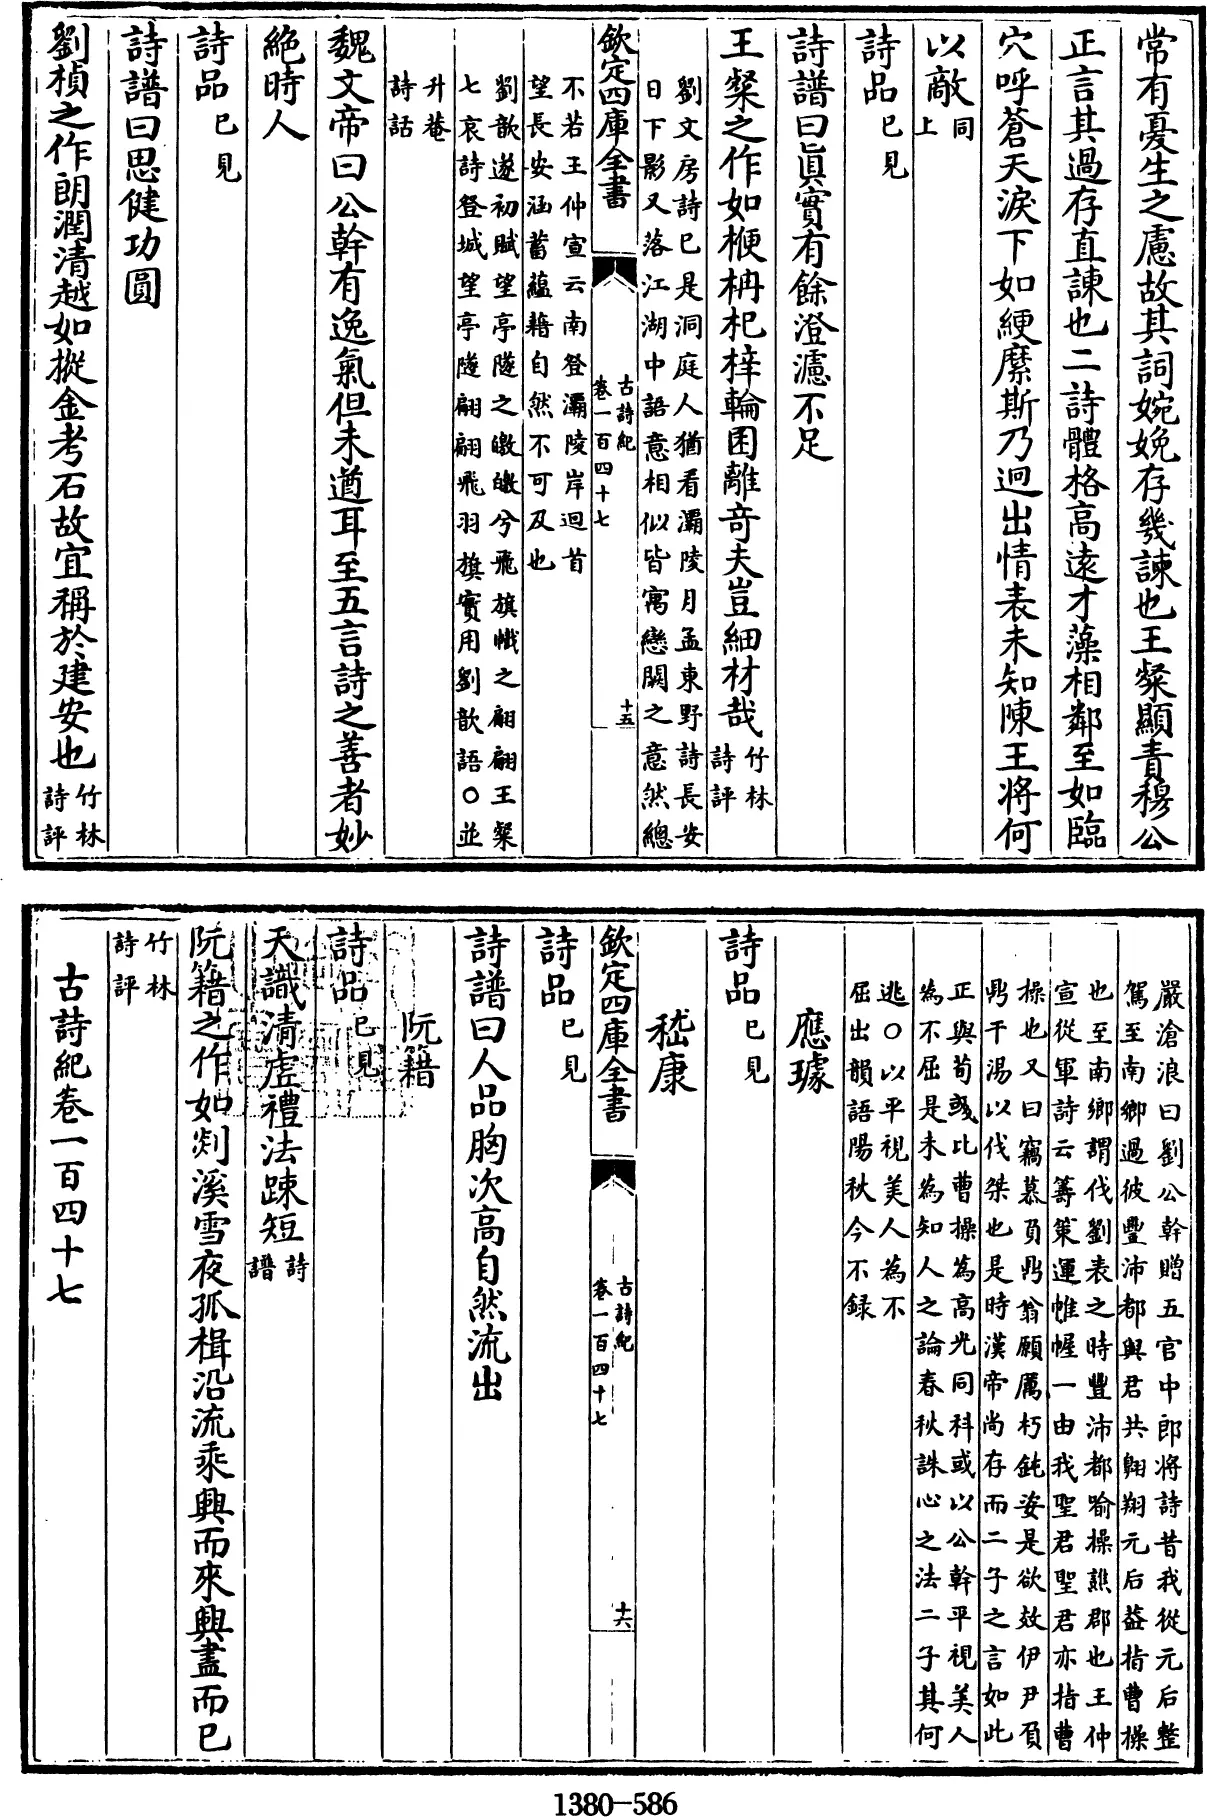 常有憂生之慮故其詞婉娩存幾諫也王粲顯責穆公
正言其過存直諫也二詩體格高逺才藻相鄰至如臨
穴呼蒼天淚下如綆縻斯乃逈出情表未知陳王将何
以敵同上
詩品已見
詩譜曰眞實有餘澄濾不足
王粲之作如楩柟杞梓輪囷離竒夫豈細材哉竹林詩評
劉文房詩已是洞庭人猶看灞陵月孟東野詩長安
日下影又落江湖中語意相似皆寓戀闕之意然總
欽定四庫全書
古詩紀
卷一百四十七
十五
不若王仲宣云南登灞陵岸迴首
望長安涵蓄蘊藉自然不可及也
劉歆遂初賦望亭隧之皦皦兮飛旗幟之翩翩王粲
七哀詩登城望亭隧翩翩飛羽旗實用劉歆語○並
升菴
詩話
魏文帝曰公幹有逸氣但未遒耳至五言詩之善者妙
絶時人
詩品已見
詩譜曰思健功圓
劉楨之作朗潤清越如摐金考石故宜稱於建安也竹林詩評
嚴滄浪曰劉公幹贈五官中郎将詩昔我從元后整
駕至南鄉過彼豐沛都與君共翱翔元后葢指曹操
也至南鄉謂伐劉表之時豐沛都喻操譙郡也王仲
宣從軍詩云籌䇿運帷幄一由我聖君聖君亦指曹
操也又曰竊慕負鼎翁願厲朽鈍姿是欲效伊尹負
鼎干湯以伐桀也是時漢帝尚存而二子之言如此
正與荀彧比曹操為高光同科或以公幹平視美人
為不屈是未為知人之論春秋誅心之法二子其何
逃○以平視美人為不
屈出韻語陽秋今不録
應璩
詩品已見
嵇康
欽定四庫全書
古詩紀
卷一百四十七
十六
詩品已見
詩譜曰人品胸次高自然流出
阮籍
詩品已見
天識清虛禮法踈短詩譜
阮籍之作如剡溪雪夜孤楫沿流乘興而來興盡而已
竹林
詩評
古詩紀卷一百四十七
1380-586